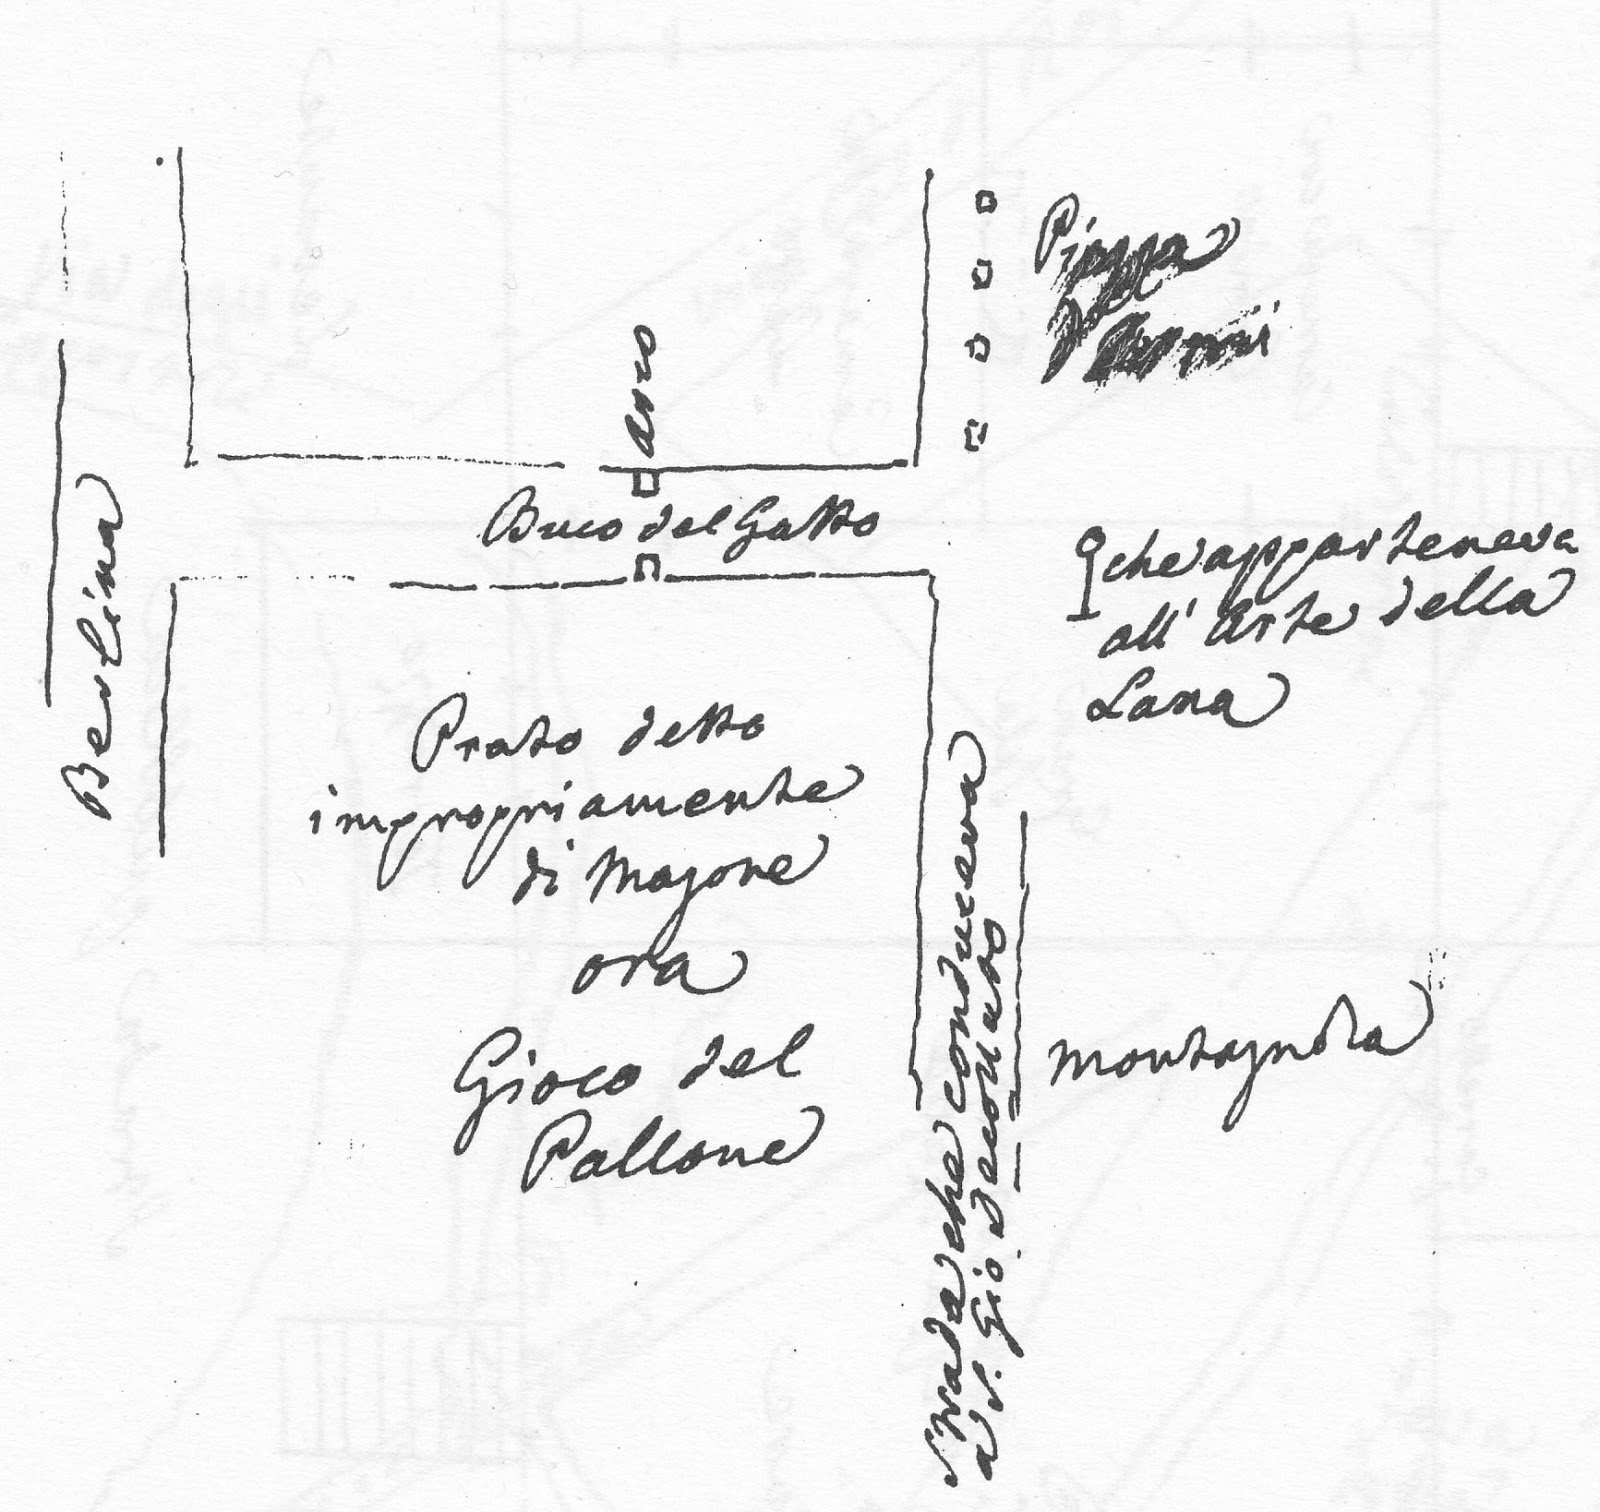 Piazza
d'Armi
Arco
Buco del Gatto
che apparteneva
all' Arte della
Lana
Berlina
Prato detto
impropriamente
di Magone
ora
Gioco del
Pallone
Montagnola
Strada che conduceva
a S. Gio. Decollato